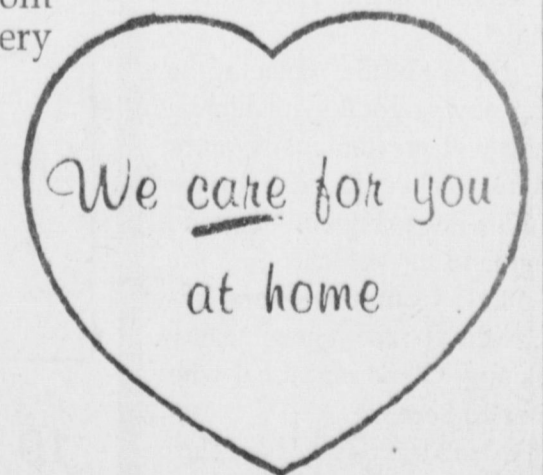 ery
We care for you
at home